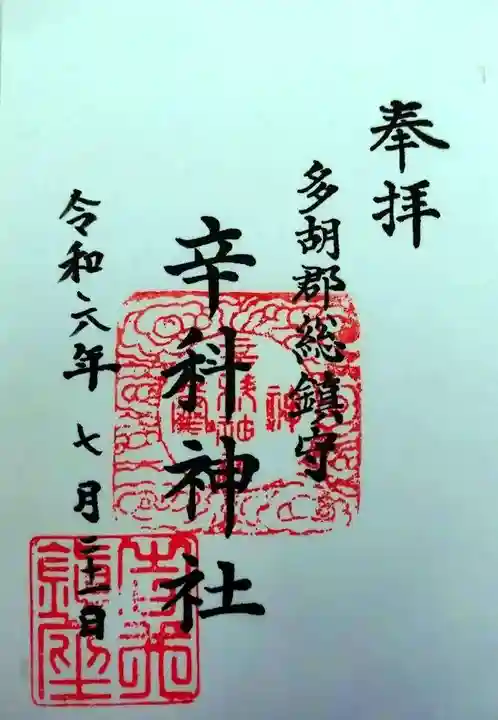 奉拝
多胡郡総鎮守
辛科神社
令和六年七月二十一日